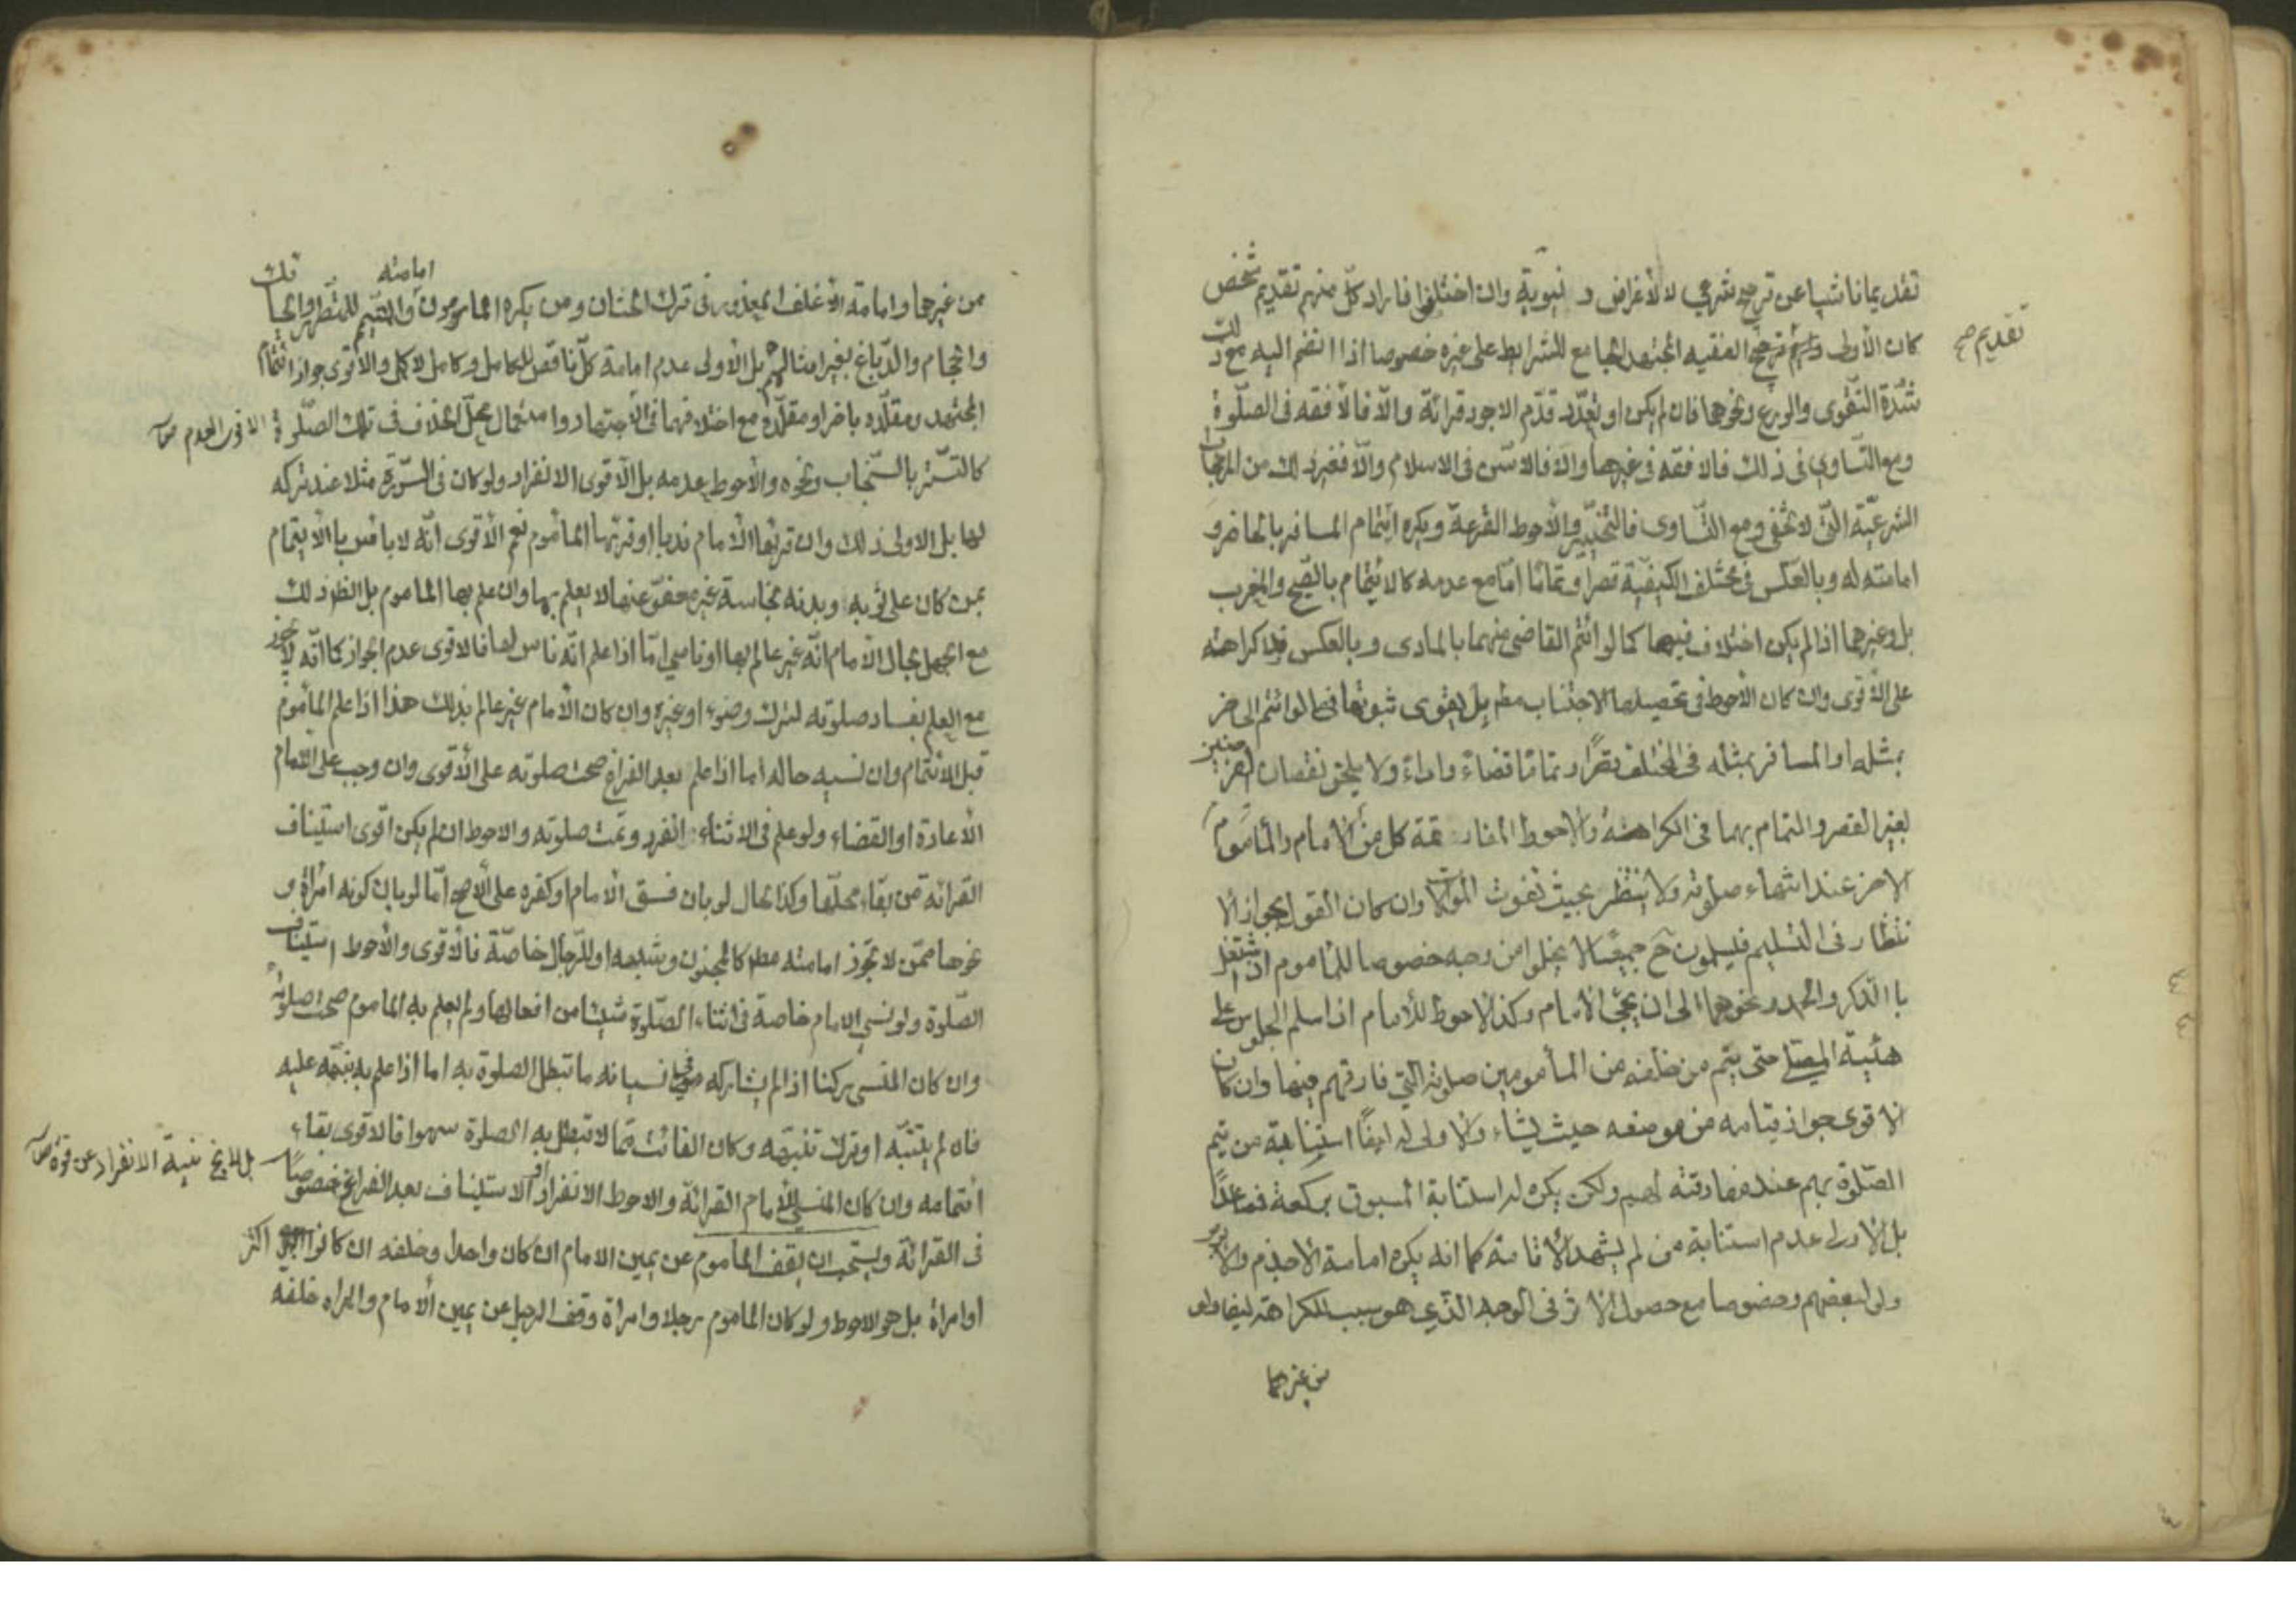 تقديما ناشيا عن ترجيح شرعي لا لأغراض دنيوية وان اختلفوا فاراد كلّ منهم تقديم شخص
كان الأولى ترجيح الفقيه المجتهد الجامع للشرايط على غيره خصوصا اذا انضم اليه مع ذلك
تقديم صح
شدّة التقوى والورع ونحوهما فان لم يكن او تعدّد قدّم الاجود قرائة والّا فالأفقه فى الصلوة
ومع التساوي فى ذلك فالافقه فى غيرها والّا فالاسّن فى الاسلام والّا فغير ذلك من المرجحات
الشرعيّة التى لا تخفى ومع التساوى فالتخيير والأحوط القرعة ويكره ائتمام المسافر بالحاضر و
امامته له وبالعكس فى مختلف الكيفيّة قصرا وتماما امّا مع عدمه كالائتمام بالصبح والمغرب
بل وغيرهما اذا لم يكن اختلاف فيهما كما لو ائتم القاضى منهما بالمادى وبالعكس فلا كراهة
على الأقوى وان كان الأحوط فى تحصيلها الاجتناب مطلقا بل يقوى ثبوتها فيما لو ائتم الحاضر
بمثله او المسافر بمثله فى المختلف قصرًا وتمامًا قضاءً واداءً ولا يلحق نقصان الفرضين
بغير القصر والتمام بهما فى الكراهة والاحوط المفارقة كل من الامام والمأموم
الاخر عند انتهاء صلوته ولا ينتظر بحيث تفوت الموالات وان كان القول بجواز الا
نتظار فى التسليم فيسلمون ح جميعًا لا يخلوا من وجه خصوصا للمأموم اذا اشتغل
با الذكر والحمد ونحوهما الى ان يجئ الامام وكذا الاحوط للأمام اذا سلم الجلوس على
هئية المصلي حتى يتم من خلفه من المأمومين صلوته التي فارقهم فيها وان كان
الاقوى جواز قيامه من موضعه حيث يشاء والاولى له ايضًا استنابة من يتم
الصّلوة بهم عند مفارقته لهم ولكن يكره له استنابة المسبوق بركعة فصاعدًا
بل الاولى عدم استنابة من لم يشهد الأقامة كما انه يكره امامة الاجذم والابرص
ولو لبعضهم وخصوصا مع حصول الاثر فى الوجه الذي هو سبب الكراهة
من غيرهما
من غيرهما وامامة الأغلف المعذور فى ترك الختان ومن يكره المأمومون امامته والمتيمم للمتطهر والحائك
والحجام والدّباغ لغير امثالهم بل الأولى عدم امامة كلّ ناقص للكامل وكامل لأكمل والأقوى جواز ائتمام
المجتهد ومقلّده باخر او مقلّده مع اختلافهما فى الأجتهاد واستعمال محلّ الخلاف فى تلك الصّلوة
الاقوى العدم ص
كالتستّر بالسّنجاب ونحوه والأحوط عدمه بل الأقوى الانفراد ولو كان فى السّورة مثلا عند تركه
لها بل الاولى ذلك وان قرئها الأمام ندبا او قرئها المأموم نعم الأقوى انّه لا باس با الأيتمام
بمن كان على ثوبه وبدنه نجاسة غير معفوّ عنها لا يعلم بها وان علم بها الماموم بل الظاهر ذلك
مع الجهل بحال الأمام انّه غير عالم بها او ناسي امّا اذا علم انّه ناس لها فالاقوى عدم الجواز كما انّه لا يجوز
مع العلم بفساد صلوته لترك وضوء او غيره وان كان الأمام غير عالم بذلك هذا اذا علم المأموم
قبل الائتمام وان نسيه حاله اما اذا علم بعد الفراغ صحت صلوته على الأقوى وان وجب على الامام
الأعادة او القضاء ولو علم فى الاثناء انفرد وتمت صلوته والاحوط ان لم يكن اقوى استيناف
القرائة من بقاء محلّها وكذا الحال لو بان فسق الامام او كفره على الأصح امّا لو بان كونه امرأة و
نحوها ممّن لا تجوز امامته مطلقا كالمجنون وشبهه او للرّجال خاصّة فالأقوى والأحوط استيناف
الصّلوة ولو نسي الامام خاصة فى اثناء الصّلوة شيئا من افعالها ولم يعلم به الماموم صحت صلوته
وان كان المنسى ركنا اذا لم يشاركه فى نسيانه ما تبطل الصلوة به اما اذا علم به نبّهه عليه
فان لم يتنبّه او ترك تنبيهه وكان الفائت ممّا لا تبطل به الصلوة سهوا فالاقوى بقاء
بل لا يخ نية الانفراد عن قوة ص
ائتمامه وان كان المنسي للأمام القرائة والاحوط الانفراد او الاستيناف بعد الفراغ خصوصًا
فى القرائة ويستحب ان يقف المأموم عن يمين الامام ان كان واحدا وخلفه ان كانوا اكثر
او امرأة بل هو الاحوط ولو كان الماموم رجلا وامرأة وقف الرجل عن يمين الأمام والمراه خلفه